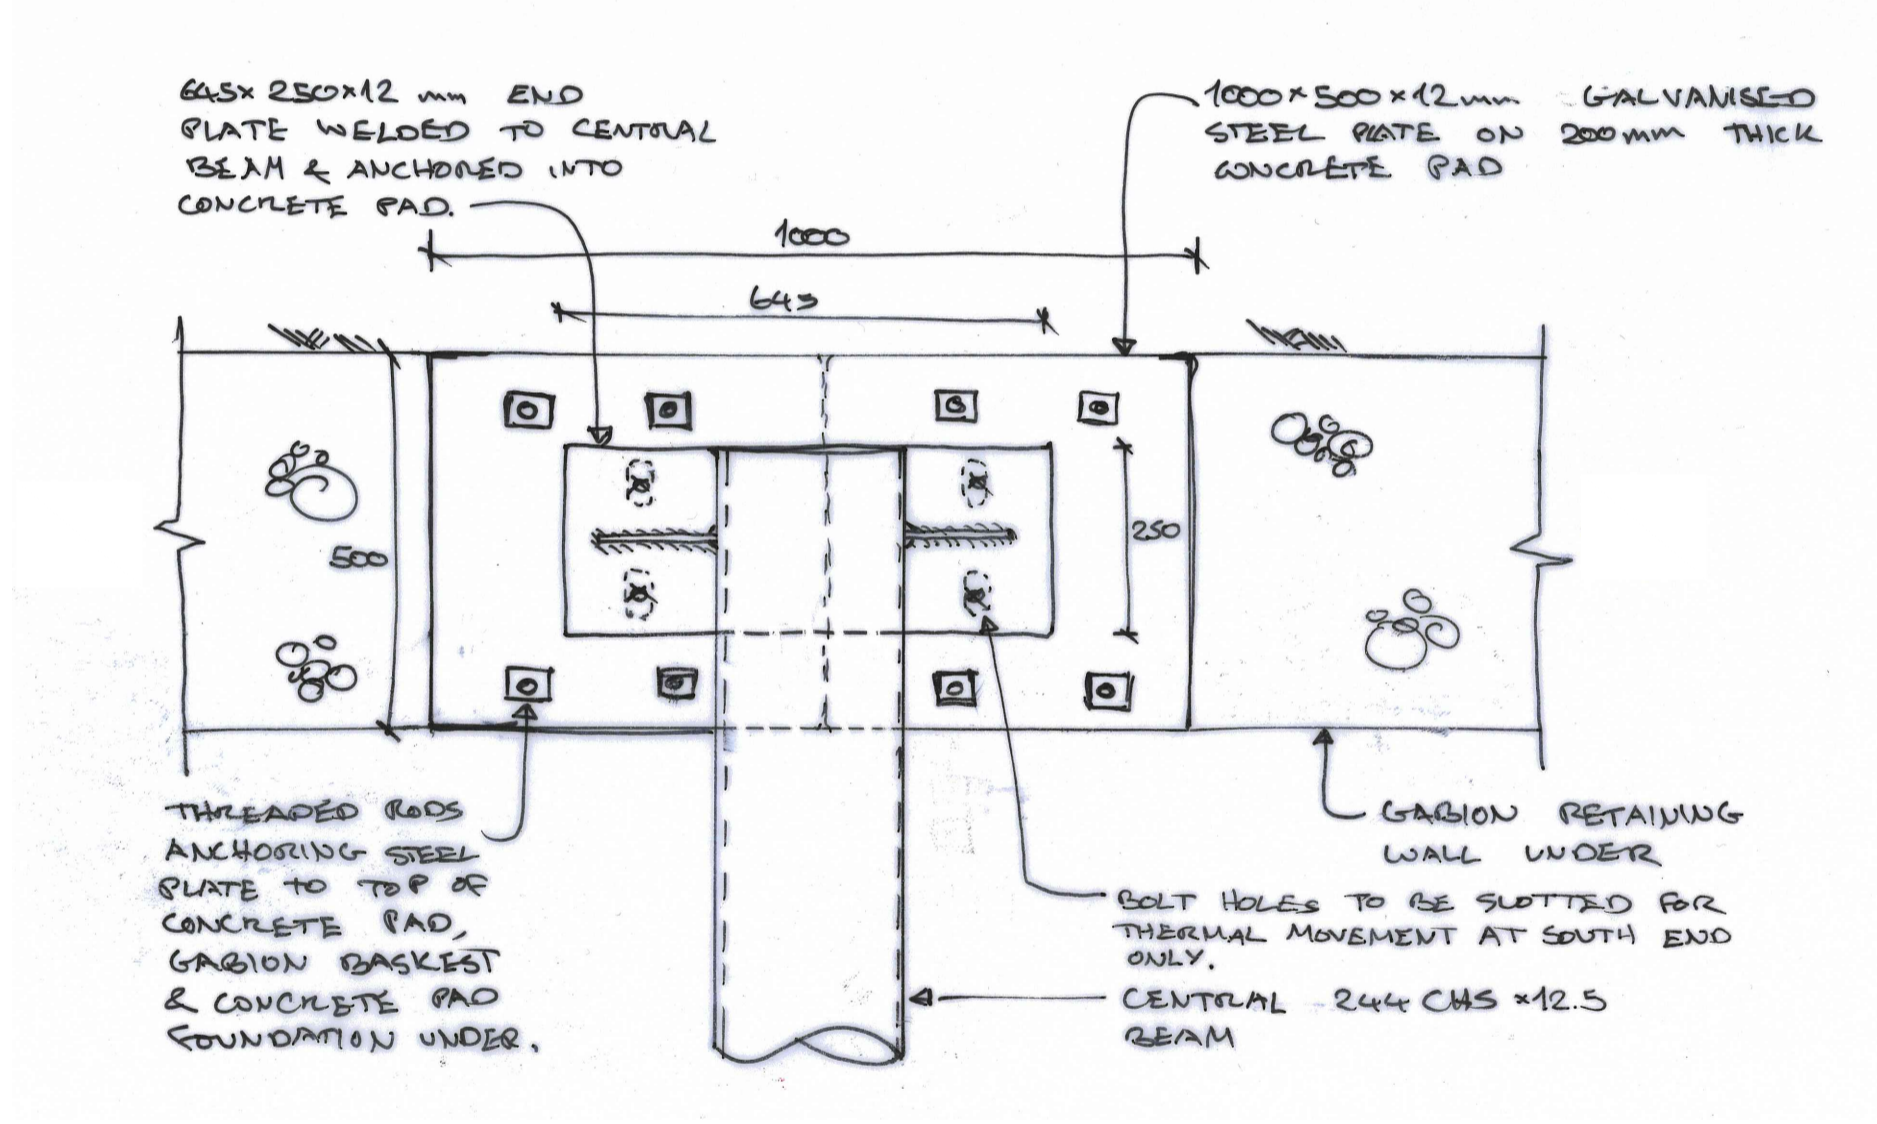 645x 250x12 mm END
PLATE WELDED TO CENTRAL
BEAM & ANCHORED INTO
CONCRETE PAD.
1000 x 500 x 12mm GALVANISED
STEEL PLATE ON 200mm THICK
CONCRETE PAD
1000
645
500
250
THREADED RODS
ANCHORING STEEL
PLATE TO TOP OF
CONCRETE PAD,
GABION BASKEST
& CONCRETE PAD
FOUNDATION UNDER.
GABION RETAINING
WALL UNDER
BOLT HOLES TO BE SLOTTED FOR
THERMAL MOVEMENT AT SOUTH END
ONLY.
CENTRAL 244 CHS x12.5
BEAM